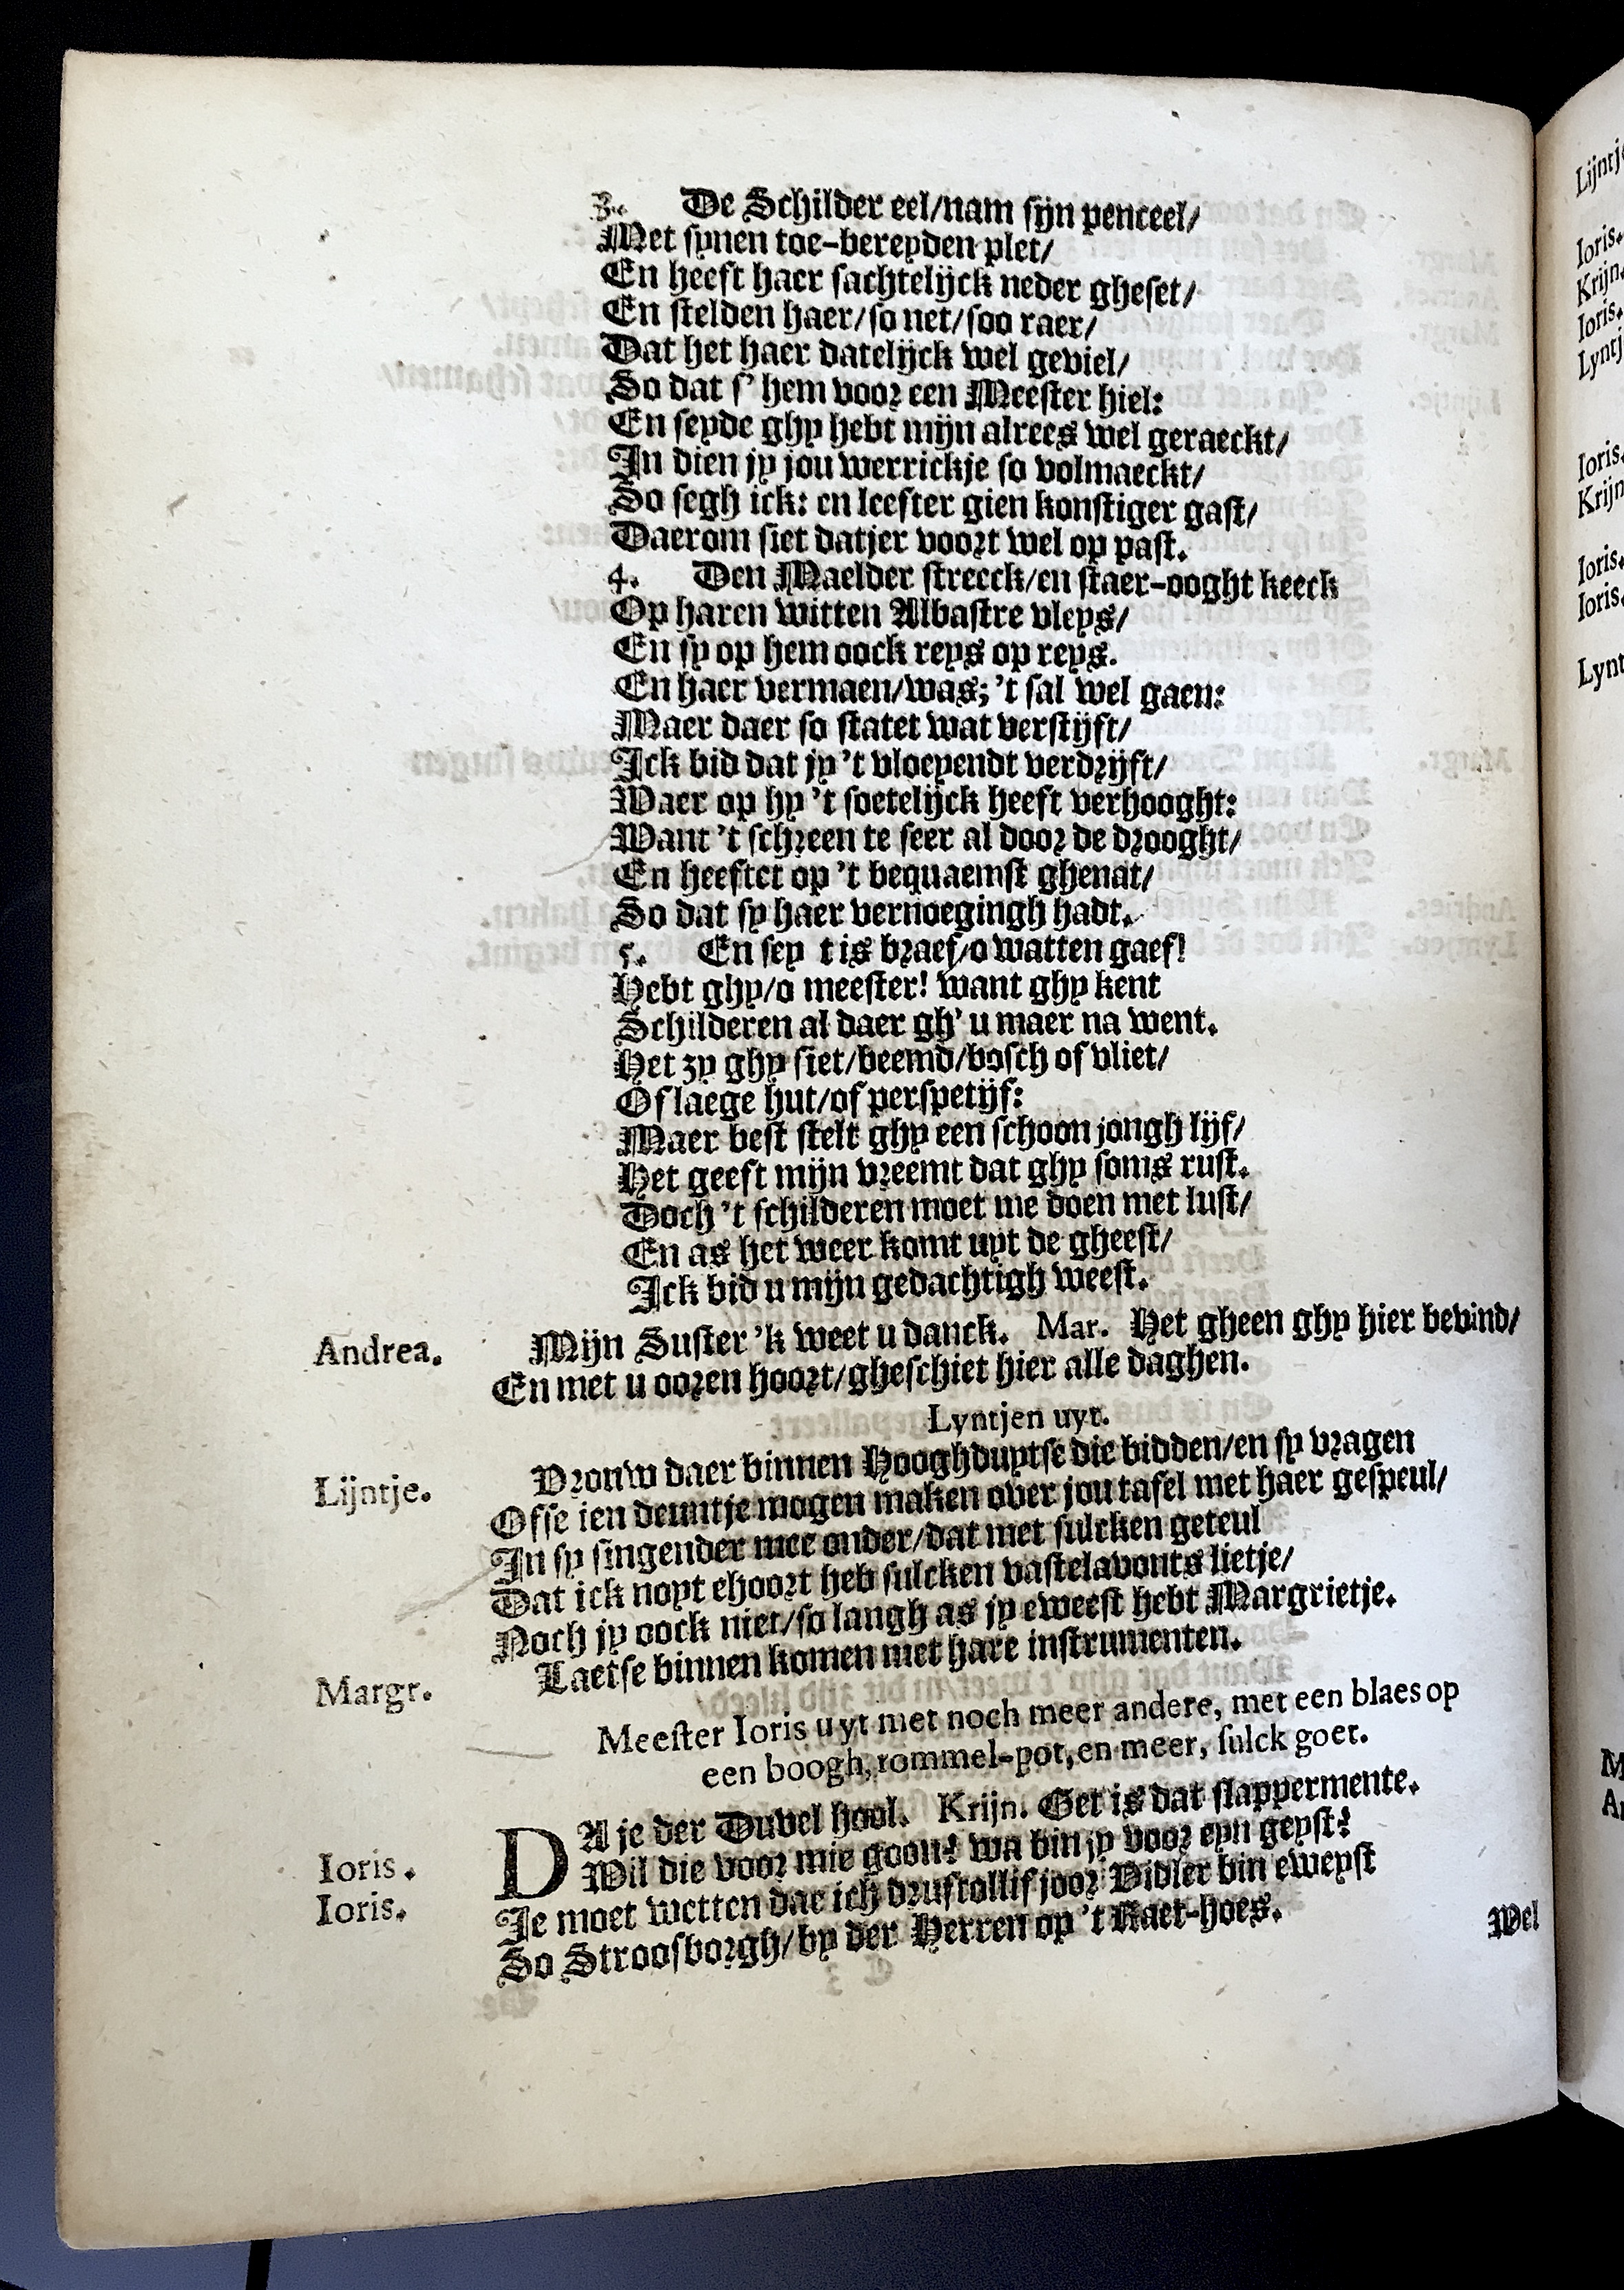 3. De Schilder eel/nam sijn penceel/
Met synen toe-bereyden plet/
En heeft haer sachtelijck neder gheset/
En stelden haer/so net/soo raer/
Dat het haer datelijck wel geviel/
So dat s' hem voor een Meester hiel:
En seyde ghy hebt mijn alrees wel geraeckt/
In dien jy jou werrickje so volmaeckt/
So segh ick: en leefter gien konstiger gast/
Daerom siet datjer voort wel op past.
4. Den Maelder streeck/en staer-ooght keeck
Op haren witten Albastre vleys/
En sy op hem oock reys op reys.
En haer vermaen/was; 't sal wel gaen:
Maer daer so statet wat verstijft/
Ick bid dat jy 't vloeyendt verdrijft/
Waer op hy 't soetelijck heeft verhooght:
Want 't schreen te seer al door de drooght/
En heeftet op 't bequaemst ghenat/
So dat sy haer vernoegingh hadt.
5. En sey t is braef/o watten gaef!
Hebt ghy/o meester! want ghy kent
Schilderen al daer gh' u maer na went.
Het zy ghy siet/beemd/bosch of vliet/
Of laege hut/of perspetijf:
Maer best stelt ghy een schoon jongh lijf/
Het geeft mijn vreemt dat ghy soms rust.
Doch 't schilderen moet me doen met lust/
En as het weer komt uyt de gheest/
Ick bid u mijn gedachtigh weest.
Andrea. Mijn Suster 'k weet u danck. Mar. Het gheen ghy hier bevind/
En met u ooren hoort/gheschiet hier alle daghen.
Lyntjen uyt.
Lijntje. Vrouw daer binnen Hooghduytse die bidden/en sy vragen
Ofse ien deuntje mogen maken over jou tafel met haer gespeul/
In sy singender mee onder/dat met sulcken geteul
Dat ick noyt ehoort heb sulcken vastelavonts lietje/
Noch jy oock niet/so langh as jy eweest hebt Margrietje.
Margr. Laetse binnen komen met hare instrumenten.
Meester Ioris uyt met noch meer andere, met een blaes op
een boogh, rommel-pot, en meer, sulck goet.
Ioris. DA je der Duvel hool. Krijn. Get is dat slappermente.
Ioris. Wil die voor mie goon? wa bin jy voor eyn geyst?
Je moet wetten dae ich drustollif joor Vidler bin eweyst
So Stroosborgh/by der Herren op 't Raet-hoes.
Wel
Lijntj
Ioris.
Krijn.
Ioris.
Lyntj
Ioris.
Krijn
Ioris.
Ioris.
Lynt
M